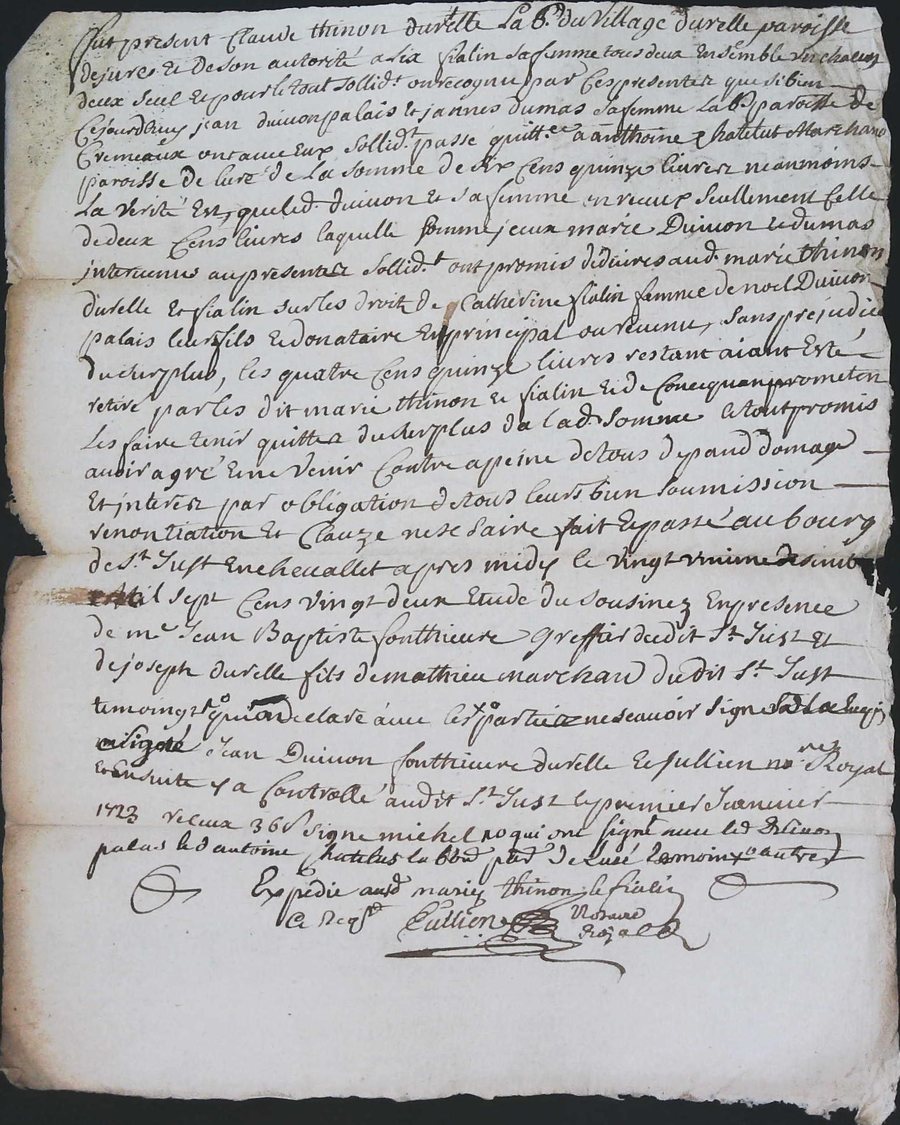 fut present Claude thinon durelle La b.r du Village durelle paroisse
de jures et de son autorité alix fialin sa femme tous deux Ensemble un chacun
deux seul et pour le tout sollid.t on recognu par Ces presentes que si bien
Cejourdhuy jean duivon palais et jannes dumas sa femme Lab.r paroisse de
Cremeaux ont avec Eux sollid.t passe quitt.ce a anthoine chatelut Marchand
paroisse de lure de La somme de six Cens quinze livres neanmoins
La Verité Est, que led. duivon et sa femme on receux seullement Celle
de deux Cens livres laquelle somme jceux marié Duivon et dumas
jntervenus au presentes sollid.t ont promis déduires aud. marié thinon
durelle et fialin sur les droit de Catherine fialin femme de noel Duivon
palais leur fils et donataire En principal ou revenu, sans préjudice
du surplus, les quatre Cens quinze livres restant aiant Esté
retiré par les dit marié thinon et fialin et de Concequan prometon
Les faire tenir quittes du surplus de lad. somme et tout promis
avoir agré Et ne Venir Contre a peine de tous depand domage
Et jnteres par obligation de tous leurs bien soumission
renontiation et Clauze nessesaire fait et passé au bourg
de S.t Just En chevallet apres midy le vingt
mil sept Cens vingt deux Etude du sousinez En presence
de m.e Jean Baptiste fonthieure greffier dudit S.t Just et
de joseph durelle fils de mathieu marchan dudit S.t Just
temoingt qui on declaré avec les partie ne scavoir signé
Jean Duivon fonthieure durelle et Jullien no.re Royal
et Ensuite y a Controllé audit S.t Just le premier Janvier
1723 receux 36s signé michel qui ont signé avec led. Duivon
palais led antoine chatelus
Expedié aud marié thinon et fialin
Ce Req.d Jullien Notaire
Royal